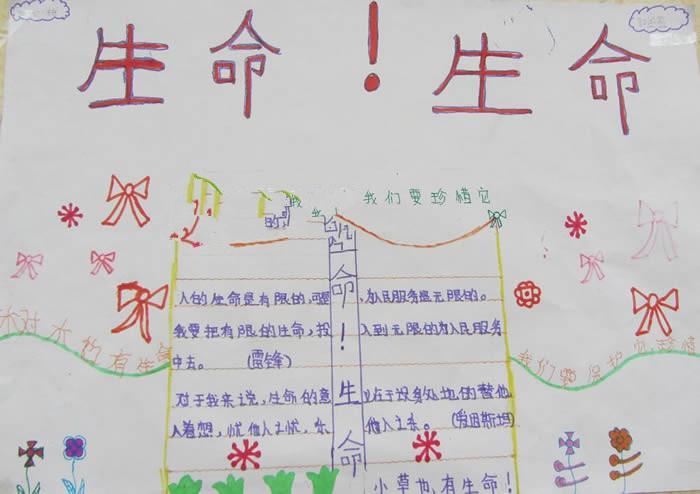 生命！生命
我们要珍惜它
人的生命是有限的，可是，为人民服务是无限的。
我要把有限的生命，投入到无限的为人民服务
中去。（雷锋）
对于我来说，生命的意义在于设身处地的替他
人着想，忧他人之忧，乐他人之乐。（爱因斯坦）
生命！生命
有生命
我们要保护
珍惜
小草也有生命！